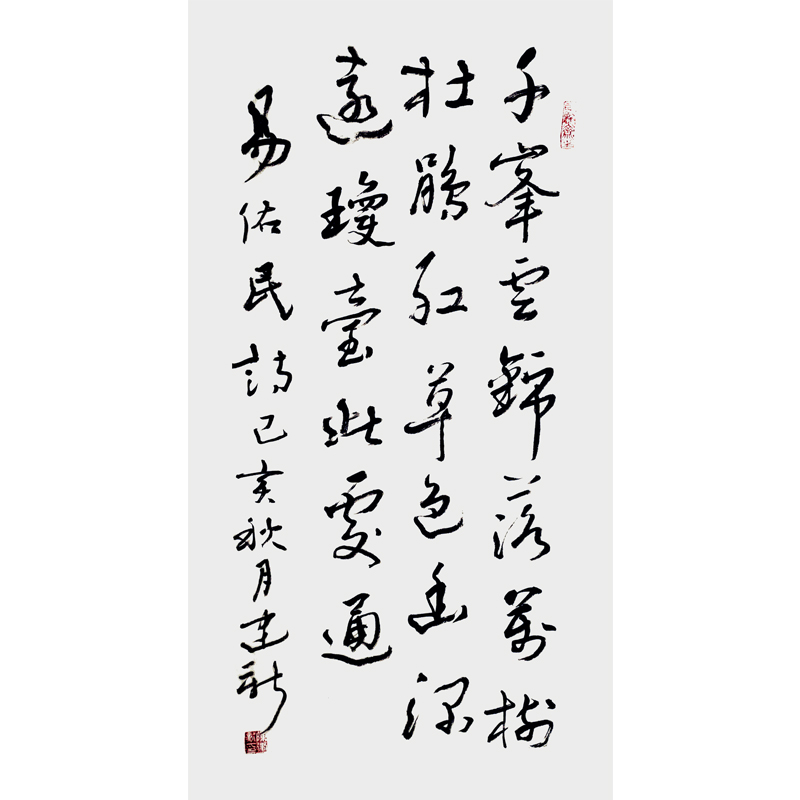 千峯雲錦落萬樹
杜鵑紅草色幽深
遠瓊臺此處通
易佑民詩己亥秋月建新